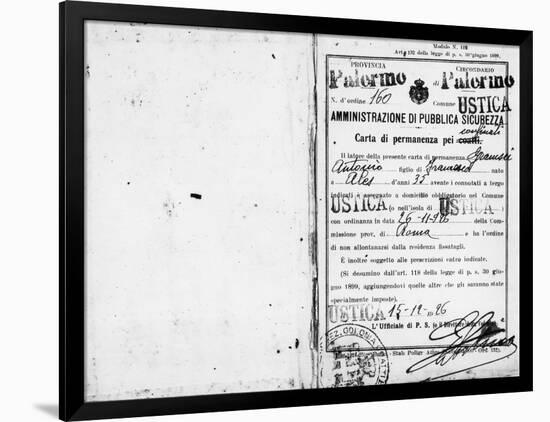 Modulo N. 112
Art. 132 della legge di p. s. 30 giugno 1889.
PROVINCIA CIRCONDARIO
Palermo di Palermo
N. d'ordine 160 Comune USTICA
AMMINISTRAZIONE DI PUBBLICA SICUREZZA
confinati
Carta di permanenza pei coatti.
Il latore della presente carta di permanenza Gramsci
Antonio figlio di Francesco nato
a Ales d'anni 35 avente i connotati a tergo
indicati è assegnato a domicilio obbligatorio nel Comune
USTICA (o nell'isola di USTICA)
con ordinanza in data 26-11-926 della Com-
missione prov. di Roma e ha l'ordine
di non allontanarsi dalla residenza fissatagli.
È inoltre soggetto alle prescrizioni entro indicate.
(Si desumino dall'art. 118 della legge di p. s. 30 giu-
gno 1899, aggiungendovi quelle altre che gli saranno state
specialmente imposte).
USTICA 15-12-926
L'Ufficiale di P. S. (o il Direttore della
COLONIA